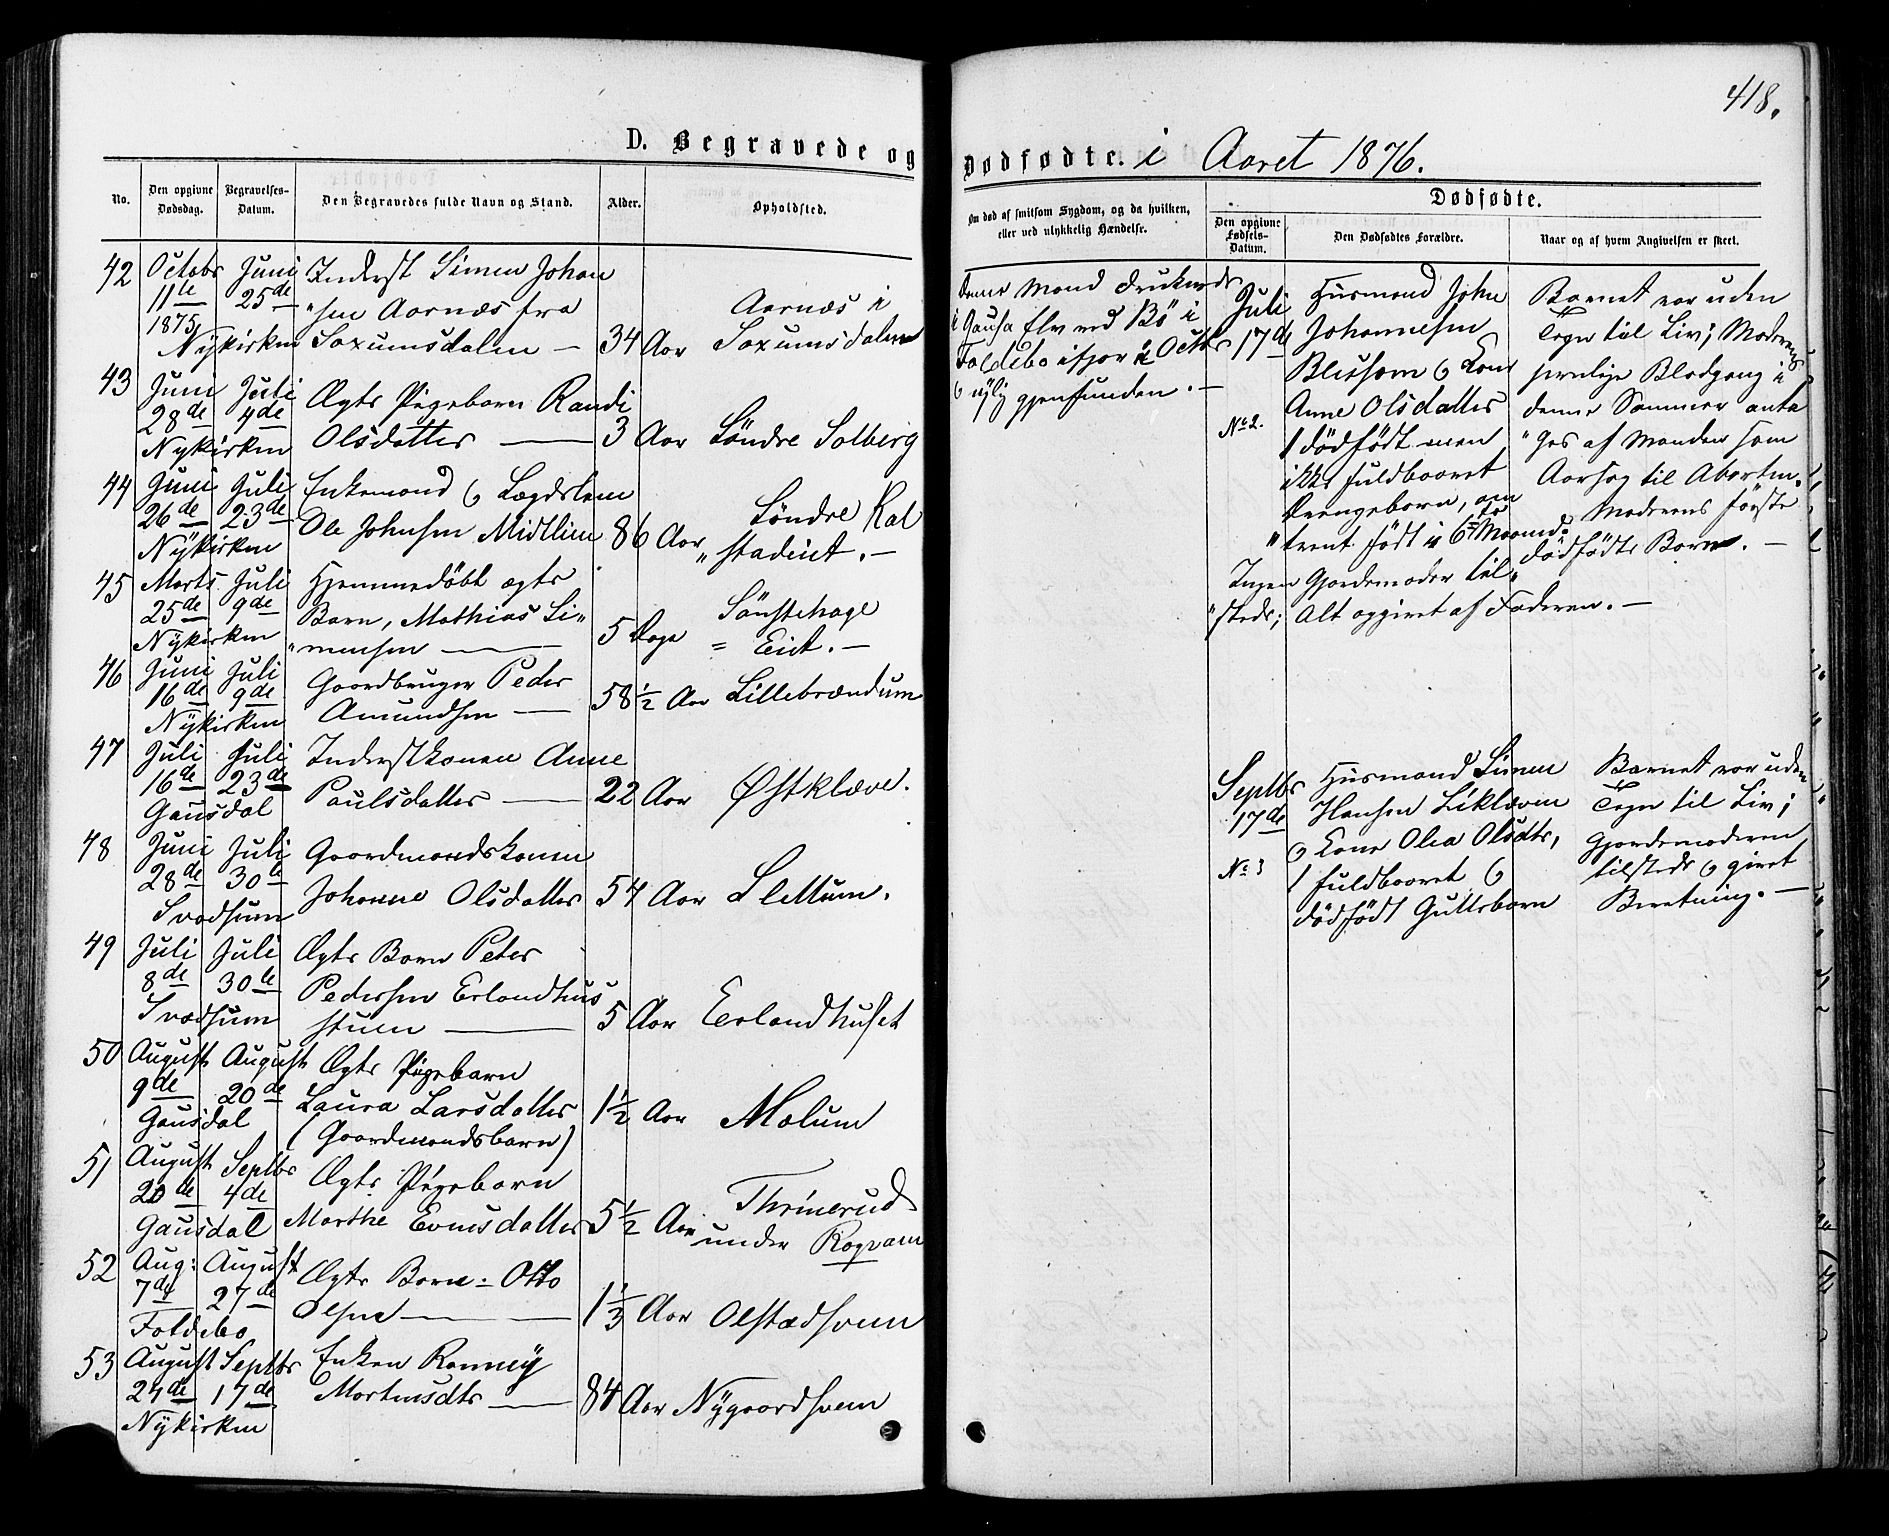 418.
D. Begravede og Dødfødte. i Aaret 1876.
No.
Den opgivne Dødsdag.
Begravelses-Datum.
Den Begravedes fulde Navn og Stand.
Alder.
Opholdsted.
Om død af smitsom Sygdom, og da hvilken, eller ved ulykkelig Hændelse.
Dødfødte.
Den opgivne Fødsels-Datum.
Den Dødfødtes Forældre.
Naar og af hvem Angivelsen er skeet.
42 Octobr Juni Inderst Simen Johan
11te 25de "sen Aarnæs fra Aarnæs i
1875
Nykirken Saxumsdalen — 34 Aar Saxumsdalen
43 Juni Juli Ægte Pigebarn Randi
28de 4de
Nykirken Olsdatter — 3 Aar Søndre Solberg
44 Juni Juli Enkemand & Lægdslem
26de 23de Ole Johnsen Midtlien 86 Aar Søndre Kal
Nykirken "stadeiet. —
45 Marts Juli Hjemmedøbt ægte
25de 9de Barn, Mathias Si" 5 Dage Sønstehage
Nykirken "mensen — = Eiet. —
46 Juni Juli Gaardbruger Peder
16de 9de Amundsen — 58½ Aar Lillebrændum
Nykirken
47 Juli Juli Inderstkonen Anne
16de 23de Paulsdatter — 22 Aar Østklæve.
Gausdal
48 Juni Juli Gaardmandskonen
28de 30te Johanne Olsdatter 54 Aar Slettum.
Svadsum
49 Juli Juli Ægte Barn Peter
8de 30te Pedersen Erlandhus
Svadsum stuen — 5 Aar Erlandhuset
50 August August Ægte Pigebarn
9de 20de Laura Larsdatter 1½ Aar Molum
Gausdal (Gaardmandsbarn)
51 August Septbr Ægte Pigebarn
20de 4de Marthe Evensdatter 5½ Aar Thrinerud
Gausdal under Rogvam
52 Aug: August Ægte Barn: Otto
7de 27de Olsen — 1⅓ Aar Olstadsveen
Foldebo
53 August Septbr Enken Ronney
27de 17de Mortensdtr — 84 Aar Nygaardsveen
Nykirken
Denne Mand druknede
i Gausa Elv ved Bö i
Foldebo ifjor i Octbr
& nylig gjenfunden. —
Juli
17de
No 2.
Husmand John
Johannesen
Blessom & Kone
Anne Olsdatter
1 dødfødt men
ikke fuldbaaret
Drengebarn, om
"trent født i 6te Maaned.
Ingen Gjordemoder til"
"stede; Alt opgivet af Faderen. —
Barnet var uden
Tegn til Liv; Moderens
jevnlige Blodgang i
denne Sommer anta
"ges af Manden som
Aarsag til Aborten.
Moderens første
dødfødte Barn. —
Septbr
17de
No 3
Husmand Simen
Hansen Liklæven
& Kone Olea Olsdtr,
1 fuldbaaret &
dødfødt Guttebarn
Barnet var uden
Tegn til Liv;
Gjordemoderen
tilstede & givet
Beretning. —